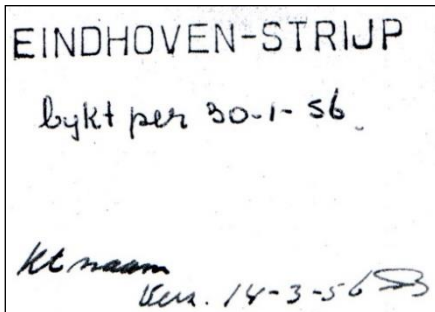 EINDHOVEN-STRIJP
bykt per 30-1-56
kt naam
Verz. 14-3-56